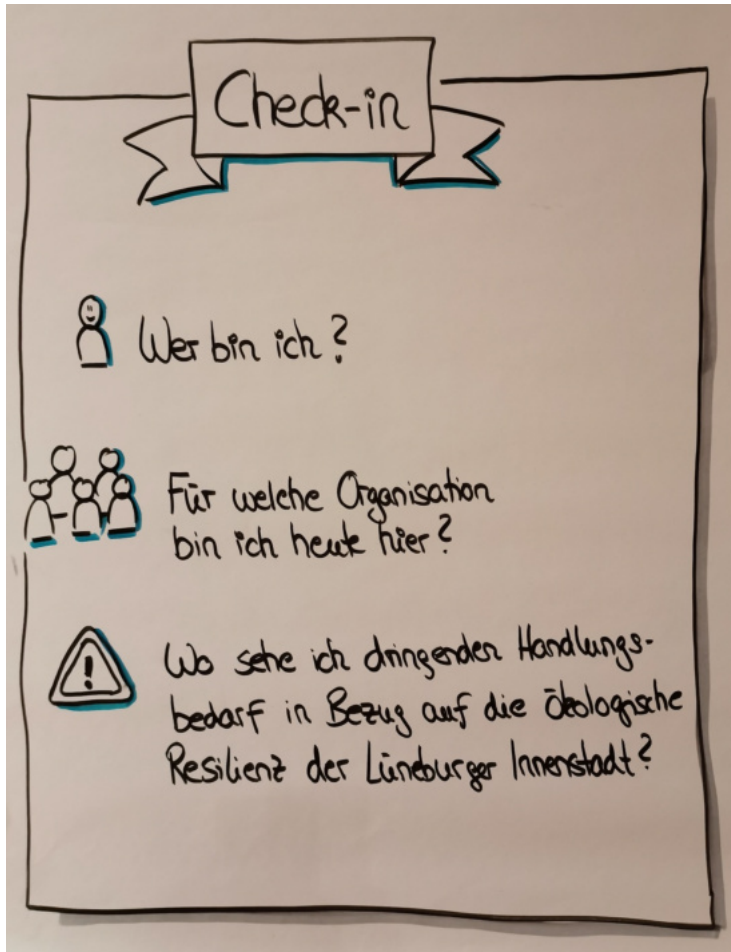 Check-in
Wer bin ich?
Für welche Organisation
bin ich heute hier?
Wo sehe ich dringenden Handlungs-
bedarf in Bezug auf die ökologische
Resilienz der Lüneburger Innenstadt?